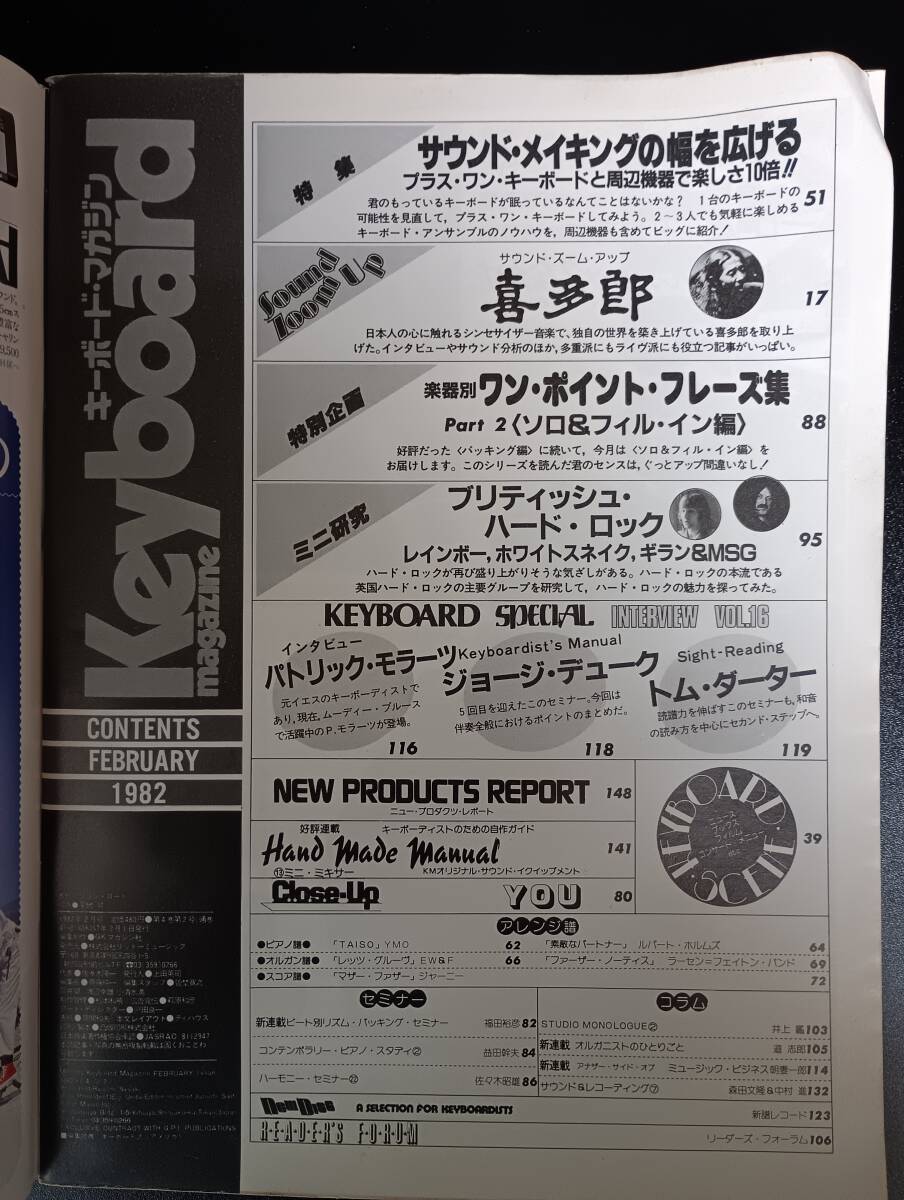 キーボード・マガジン
Keyboard
magazine
CONTENTS
FEBRUARY
1982
特集
サウンド・メイキングの幅を広げる
プラス・ワン・キーボードと周辺機器で楽しさ10倍!!
君のもっているキーボードが眠っているなんてことはないかな? 1台のキーボードの
可能性を見直して，プラス・ワン・キーボードしてみよう。2〜3人でも気軽に楽しめる
キーボード・アンサンブルのノウハウを，周辺機器も含めてビッグに紹介!
51
Sound Zoom Up
サウンド・ズーム・アップ
喜多郎
17
日本人の心に触れるシンセサイザー音楽で、独自の世界を築き上げている喜多郎を取り上
げた。インタビューやサウンド分析のほか，多重派にもライヴ派にも役立つ記事がいっぱい。
特別企画
楽器別ワン・ポイント・フレーズ集
Part 2〈ソロ&フィル・イン編〉
88
好評だった〈バッキング編〉に続いて，今月は〈ソロ&フィル・イン編〉を
お届けします。このシリーズを読んだ君のセンスは，ぐっとアップ間違いなし!
ミニ研究
ブリティッシュ・
ハード・ロック
95
レインボー，ホワイトスネイク，ギラン&MSG
ハード・ロックが再び盛り上がりそうな気ざしがある。ハード・ロックの本流である
英国ハード・ロックの主要グループを研究して，ハード・ロックの魅力を探ってみた。
KEYBOARD SPECIAL INTERVIEW VOL.16
インタビュー
パトリック・モラーツ
元イエスのキーボーディストで
あり，現在，ムーディー・ブルース
で活躍中のP.モラーツが登場。
116
Keyboardist's Manual
ジョージ・デューク
5回目を迎えたこのセミナー。今回は
伴奏全般におけるポイントのまとめだ。
118
Sight-Reading
トム・ダーター
読譜力を伸ばすこのセミナーも，和音
の読み方を中心にセカンド・ステップへ。
119
NEW PRODUCTS REPORT 148
ニュー・プロダクツ・レポート
好評連載 キーボーディストのための自作ガイド
Hand Made Manual 141
⑬ミニ・ミキサー KMオリジナル・サウンド・イクイップメント
Close-Up YOU 80
KEYBOARD・SCENE
ニュース
ブックス
フィルム
コンサート・メニュー
etc.
39
アレンジ譜
●ピアノ譜● 「TAISO」YMO 62
「素敵なパートナー」 ルパート・ホルムズ 64
●オルガン譜● 「レッツ・グルーヴ」EW&F 66
「ファーザー・ノーティス」 ラーセン=フェイトン・バンド 69
●スコア譜● 「マザー・ファザー」ジャーニー 72
セミナー
新連載ビート別リズム・バッキング・セミナー 福田裕彦 82
コンテンポラリー・ピアノ・スタディ② 益田幹夫 84
ハーモニー・セミナー㉒ 佐々木昭雄 86
コラム
STUDIO MONOLOGUE② 井上 鑑 103
新連載 オルガニストのひとりごと 道 志郎 105
新連載 アナザー・サイド・オブ ミュージック・ビジネス 朝妻一郎 114
サウンド&レコーディング⑦ 森田文隆&中村 進 132
New Disc A SELECTION FOR KEYBOARDISTS 新譜レコード 123
READER'S FORUM リーダーズ・フォーラム 106